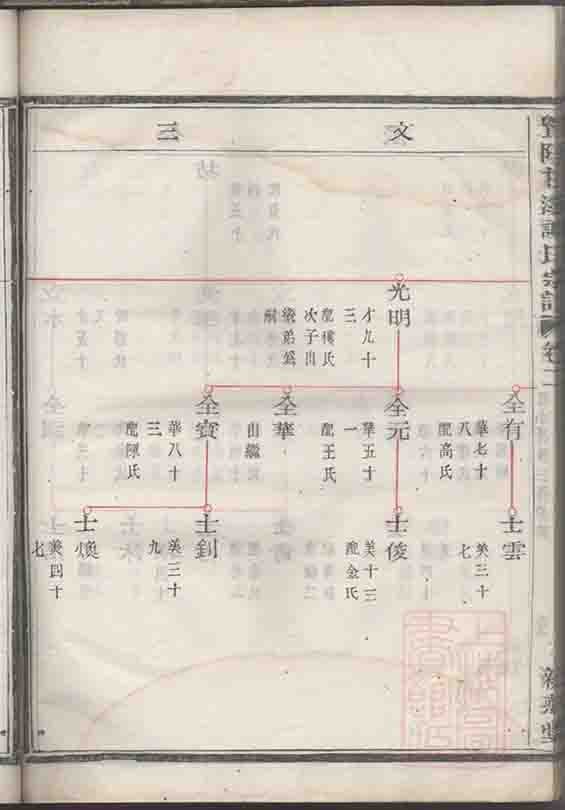 文
三
光明
才九十
三
配樓氏
次子出
繼弟為
嗣
全有
華七十
八
配高氏
全元
華五十
一
配王氏
全華
出繼
全寶
華八十
三
配陳氏
士雲
美三十
七
士俊
美十三
配金氏
士釗
美三十
九
士煥
美四十
七
氏宗譜
卷二